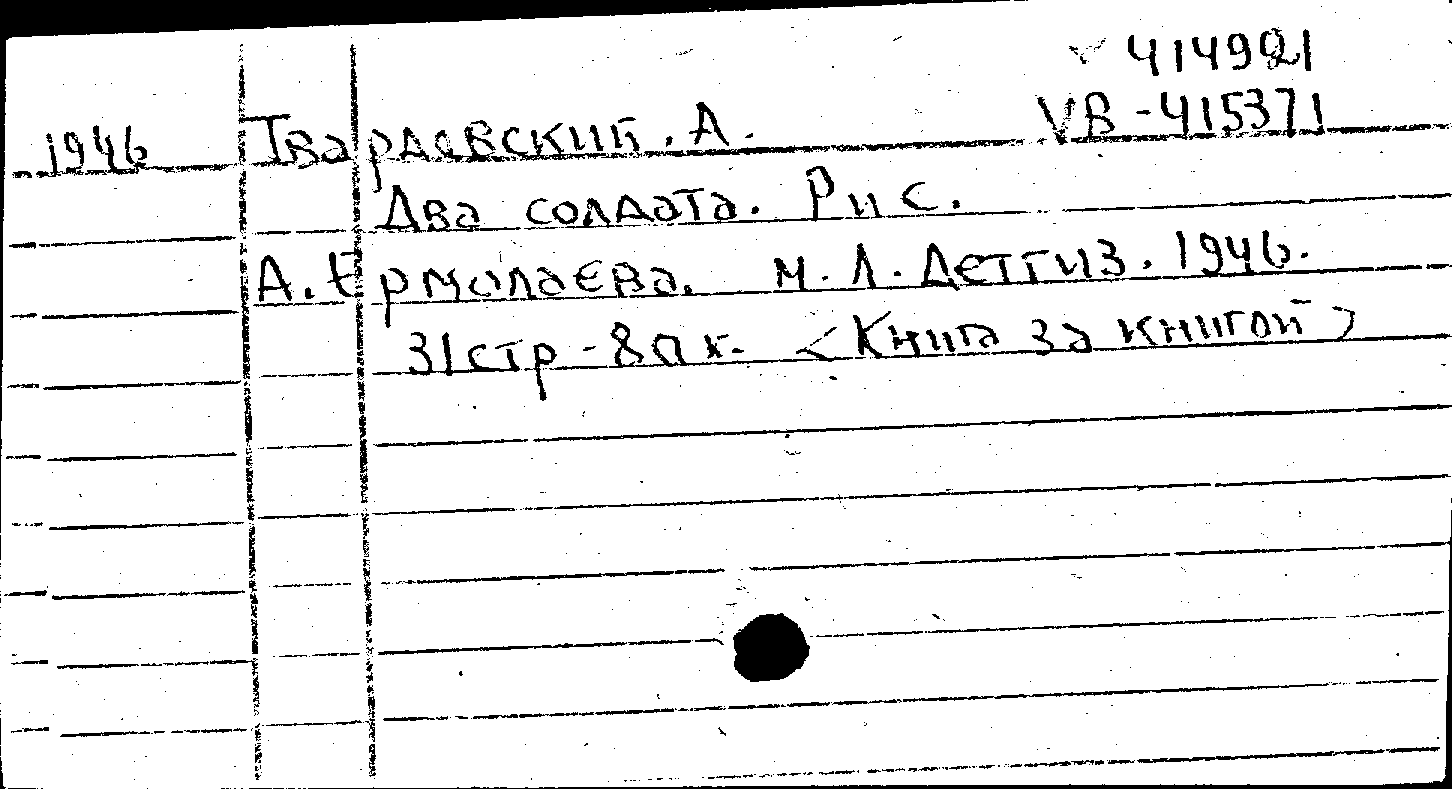 414921
1946 Твардовский. А. VB-415371
Два солдата. Рис.
А. Ермолаева. М. Л. Детгиз. 1946.
31 стр - 8
<Книга за книгой>